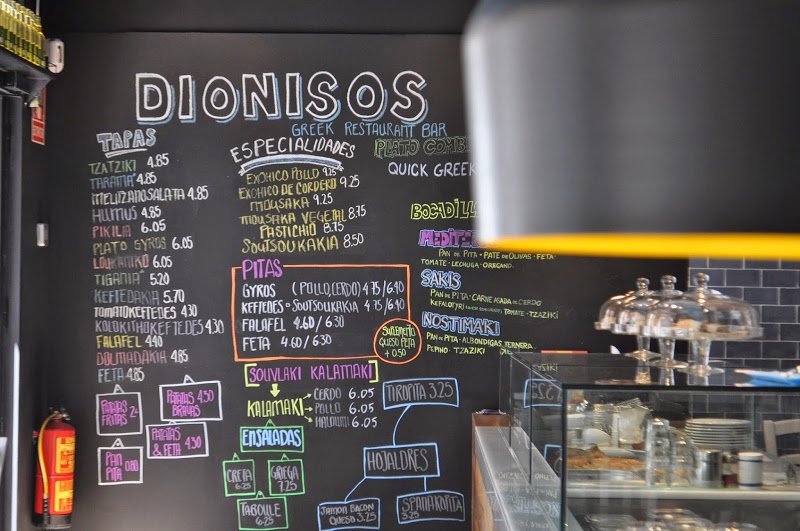 DIONISOS
GREEK RESTAURANT BAR
TAPAS
TZATZIKI 4.85
TARAMA 4.85
MELITZANOSALATA 4.85
HUMUS 4.85
PIKILIA 6.05
PLATO GYROS 6.05
LOUKANIKO 6.05
TIGANIA 5.20
KEFTEDAKIA 5.70
TOMATOKEFTEDES 4.30
KOLOKITHOKEFTEDES 4.30
FALAFEL 4.40
DOLMADAKIA 4.85
FETA 4.85
PATATAS
FRITAS
PATATAS 4.30
BRAVAS
PATATAS
& FETA 4.30
PAN
PITA 0.80
ESPECIALIDADES
EXOHICO POLLO 9.25
EXOHICO DE CORDERO 9.25
MOUSAKA 9.25
MOUSAKA VEGETAL 8.75
PASTICHIO 8.75
SOUTSOUKAKIA 8.50
PITAS
GYROS (POLLO, CERDO) 4.75/6.40
KEFTEDES o SOUTSOUKAKIA 4.75/6.40
FALAFEL 4.60/6.30
FETA 4.60/6.30
SUPLEMENTO
QUESO FETA
+0.50
SOUVLAKI KALAMAKI
KALAMAKI
CERDO 6.05
POLLO 6.05
HALOUMI 6.05
ENSALADAS
CRETA
6.25
GRIEGA
7.25
TABOULE
6.25
TIROPITA 3.25
HOJALDRES
JAMON BACON
QUESO 3.25
SPANAKOPITA
3.25
PLATO
QUICK GREEK
PAN DE PITA · PATE DE OLIVAS · FETA ·
TOMATE · LECHUGA · OREGANO.
SAKIS
PAN DE PITA · CARNE ASADA DE CERDO
KEFALOTYRI TOMATE · TZAZIKI
NOSTIMAKI
PAN DE PITA · ALBONDIGAS TERNERA
PEPINO · TZAZIKI